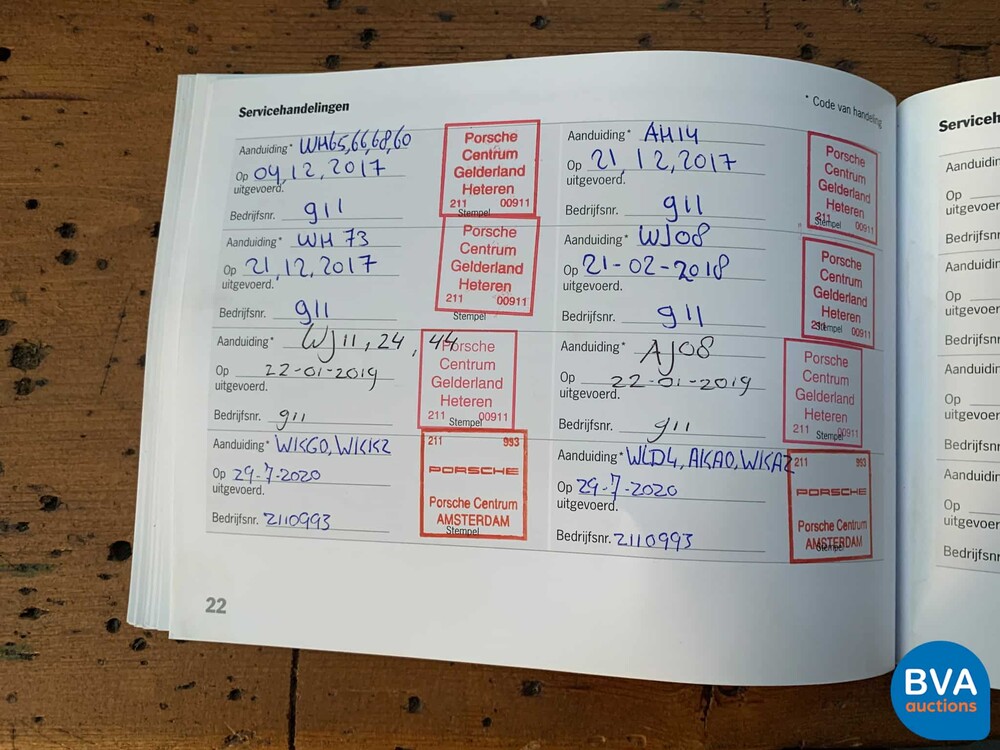 Servicehandelingen
* Code van handeling
Aanduiding* WH65,66,68,60
Op 04,12,2017
uitgevoerd.
Bedrijfsnr. 911
Porsche
Centrum
Gelderland
Heteren
211 00911
Stempel
Aanduiding* AH14
Op 21,12,2017
uitgevoerd.
Bedrijfsnr. 911
Porsche
Centrum
Gelderland
Heteren
211 00911
Stempel
Aanduiding* WH 73
Op 21,12,2017
uitgevoerd.
Bedrijfsnr. 911
Porsche
Centrum
Gelderland
Heteren
211 00911
Stempel
Aanduiding* WJ08
Op 21-02-2018
uitgevoerd.
Bedrijfsnr. 911
Porsche
Centrum
Gelderland
Heteren
211 00911
Stempel
Aanduiding* WJ11, 24, 44
Op 22-01-2019
uitgevoerd.
Bedrijfsnr. 911
Porsche
Centrum
Gelderland
Heteren
211 00911
Stempel
Aanduiding* AJ08
Op 22-01-2019
uitgevoerd.
Bedrijfsnr. 911
Porsche
Centrum
Gelderland
Heteren
211 00911
Stempel
Aanduiding* WKG0, WKK2
Op 29-7-2020
uitgevoerd.
Bedrijfsnr. 2110993
211 993
PORSCHE
Porsche Centrum
AMSTERDAM
Stempel
Aanduiding* WLD4, AKA0, WKA2
Op 29-7-2020
uitgevoerd.
Bedrijfsnr. 2110993
211 993
PORSCHE
Porsche Centrum
AMSTERDAM
Stempel
22
Op
Bedrijfsnr
Op
Op
Op
BVA
auctions